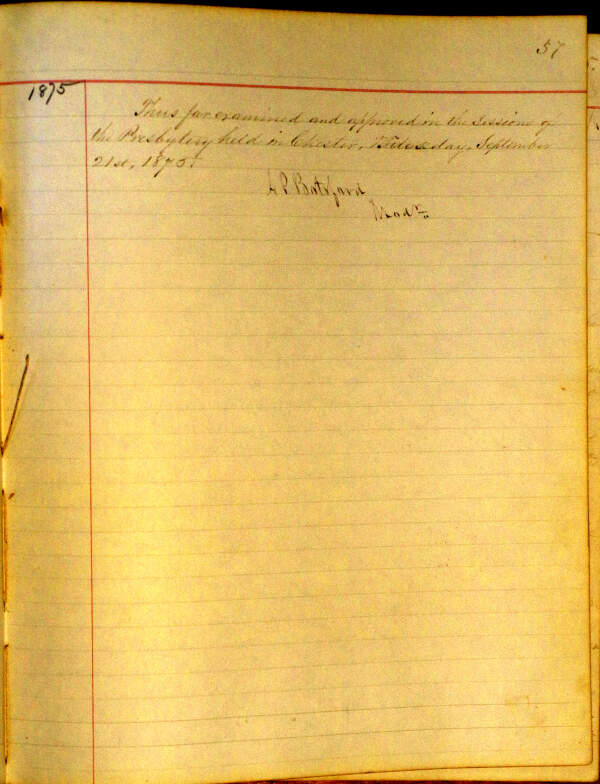 57
1875
Thus far examined and approved in the Sessions of
the Presbytery held in Chester, Tuesday, September
21st, 1875.
Mod